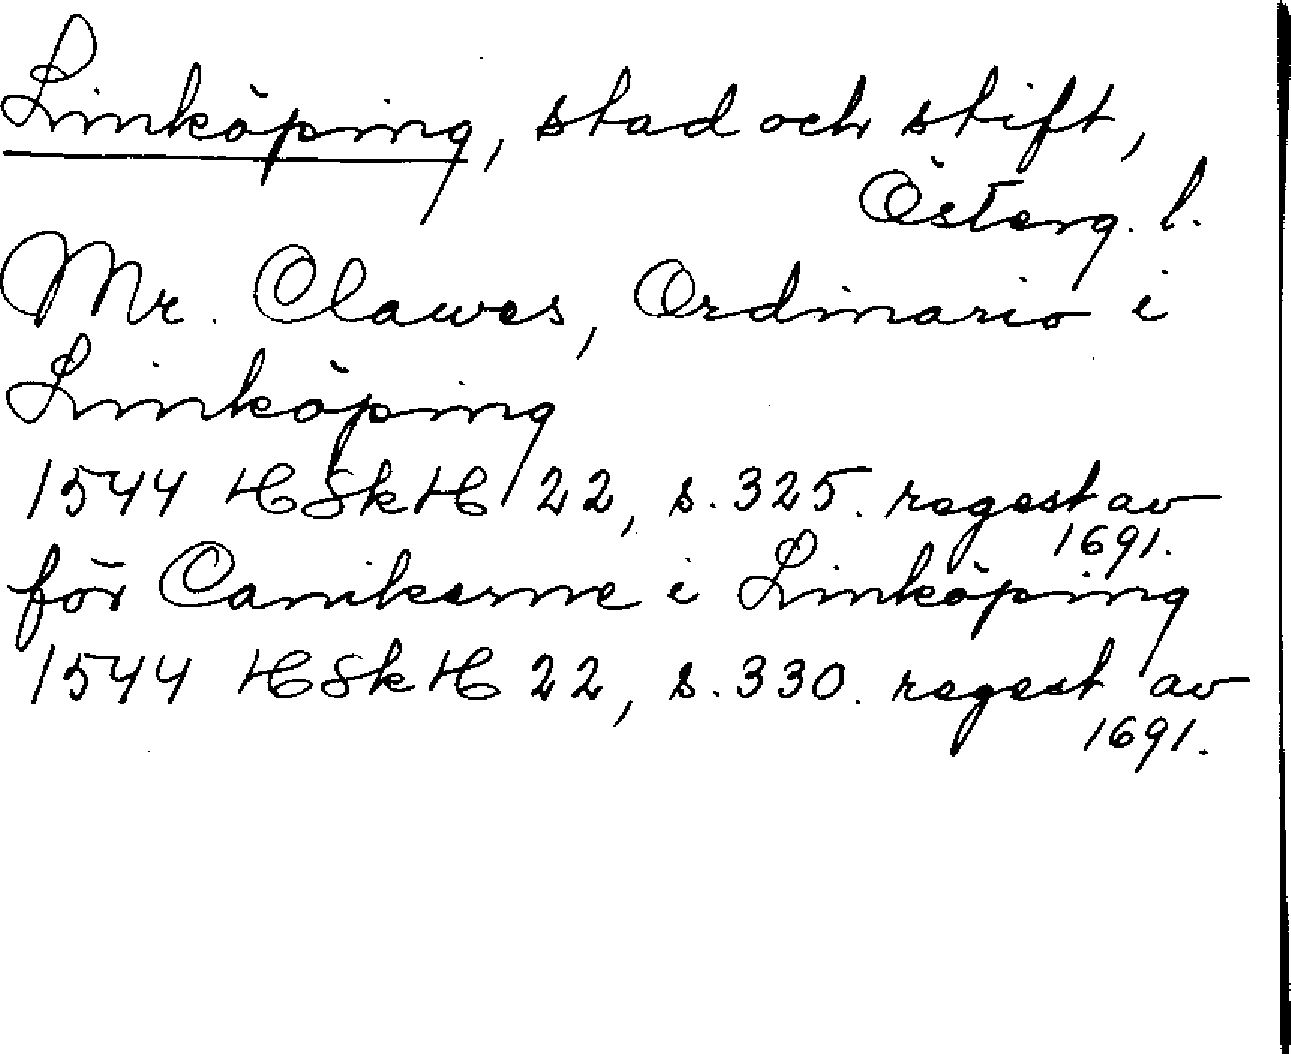 Linköping, stad och stift,
Österg. l.
Mr. Clawes, Ordinario i
Linköping
1544 HSkH 22, s. 325. regest av
1691.
för Canikerne i Linköping
1544 HSkH 22, s. 330. regest av
1691.